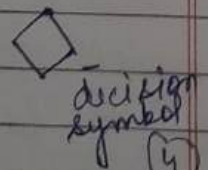 decision
symbol
(4)